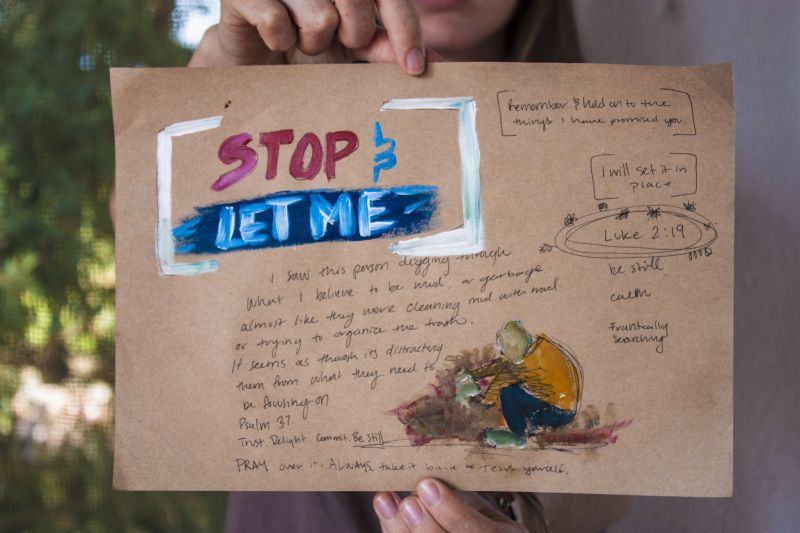 STOP &
LET ME
Remember & hold on to the
things I have promised you.
I will set it in
place
Luke 2:19
be still
calm
Frantically
searching
I saw this person digging through
what I believe to be mud, or garbage
almost like they were cleaning mud with mud
or trying to organize the trash.
It seems as though its distracting
them from what they need to
be focusing on
Psalm 37
Trust. Delight. Commit. Be Still
PRAY over it. ALWAYS. take it back to Jesus yourself.